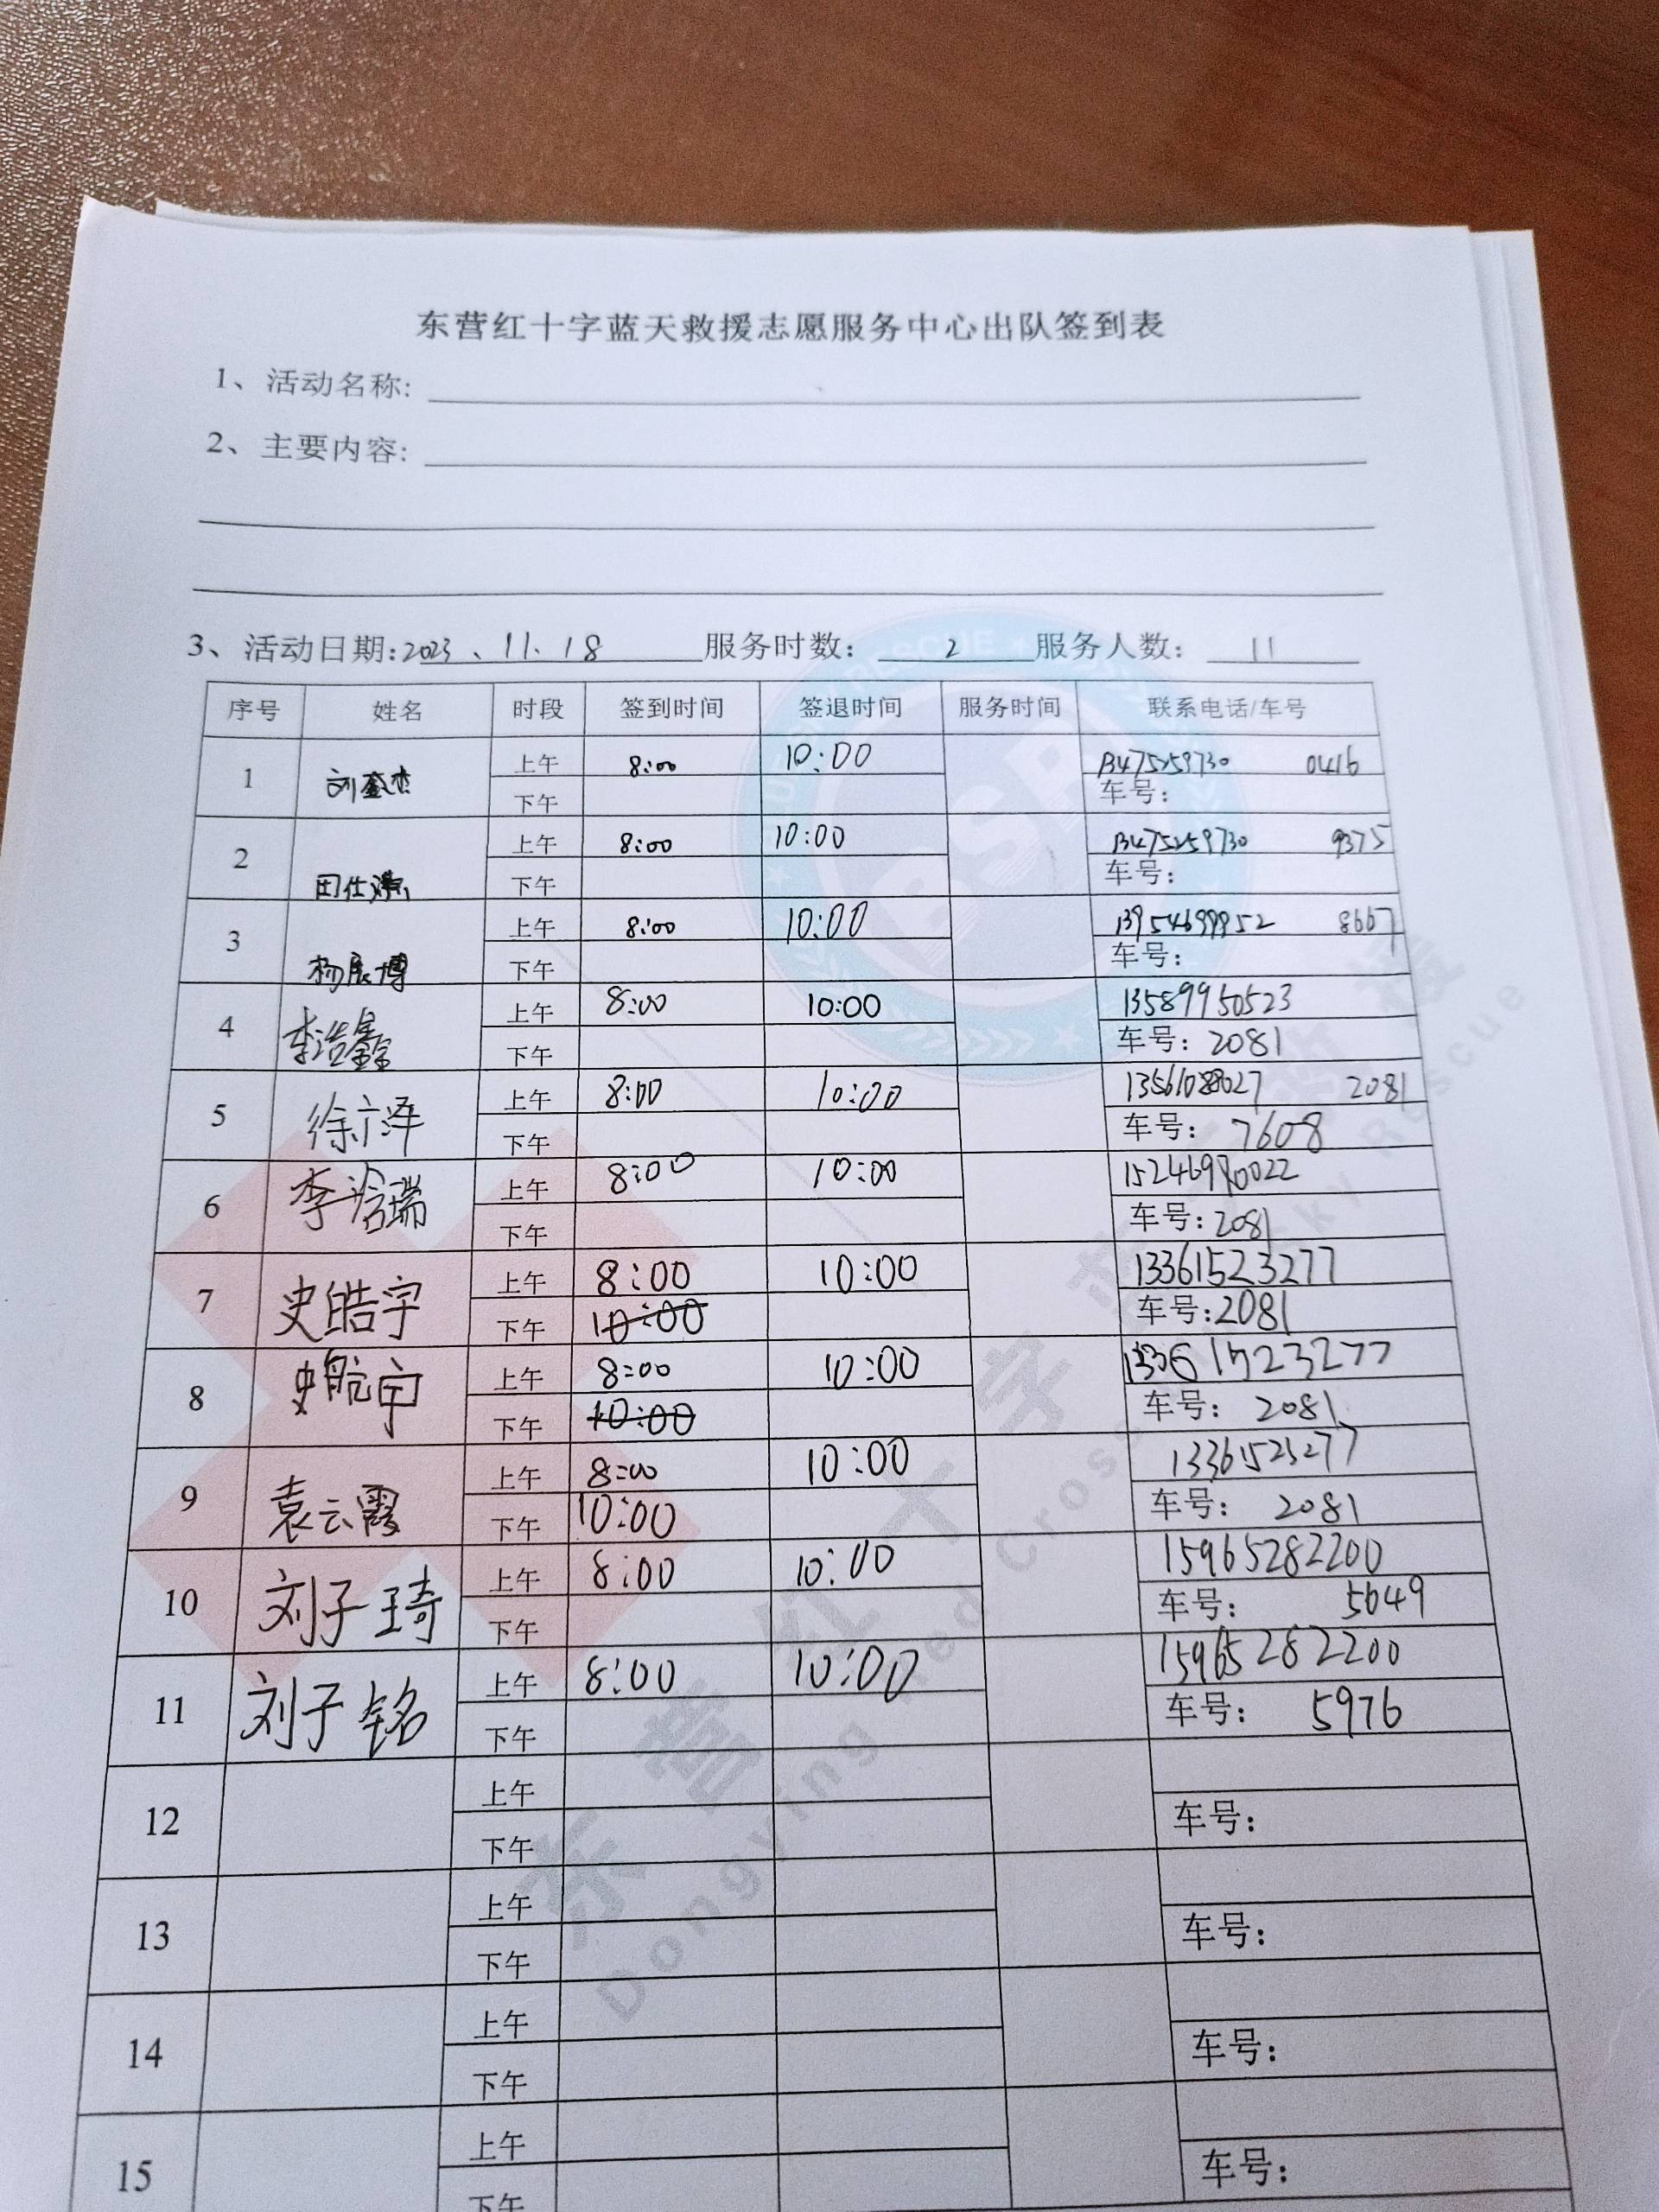 东营红十字蓝天救援志愿服务中心出队签到表
1、活动名称:
2、主要内容:
3、活动日期:2023、11.18 服务时数: 2 服务人数: 11
序号 姓名 时段 签到时间 签退时间 服务时间 联系电话/车号
1 刘鑫杰 上午 8:00 10:00 13475259730 0416
下午 车号:
2 上午 8:00 10:00 13475259730 9375
田仕 下午 车号:
3 上午 8:00 10:00 13954699952 8667
杨展博 下午 车号:
4 李浩鑫 上午 8:00 10:00 13589950523
下午 车号: 2081
5 徐广泽 上午 8:00 10:00 2081
下午 车号: 7608
6 李浛瑞 上午 8:00 10:00 15246980022
下午 车号: 2081
7 史皓宇 上午 8:00 10:00 13361523277
下午 10:00 车号: 2081
8 史航宇 上午 8:00 10:00 13361523277
下午 10:00 车号: 2081
9 袁云霞 上午 8:00 10:00 13361523277
下午 10:00 车号: 2081
10 刘子琦 上午 8:00 10:00 15965282200
下午 车号: 5649
11 刘子铭 上午 8:00 10:00 15965282200
下午 车号: 5976
12 上午
下午 车号:
13 上午
下午 车号:
14 上午
下午 车号:
15 上午
下午 车号:
东营红十字蓝天救援
Dongying Red Cross Blue Sky Rescue
BSR